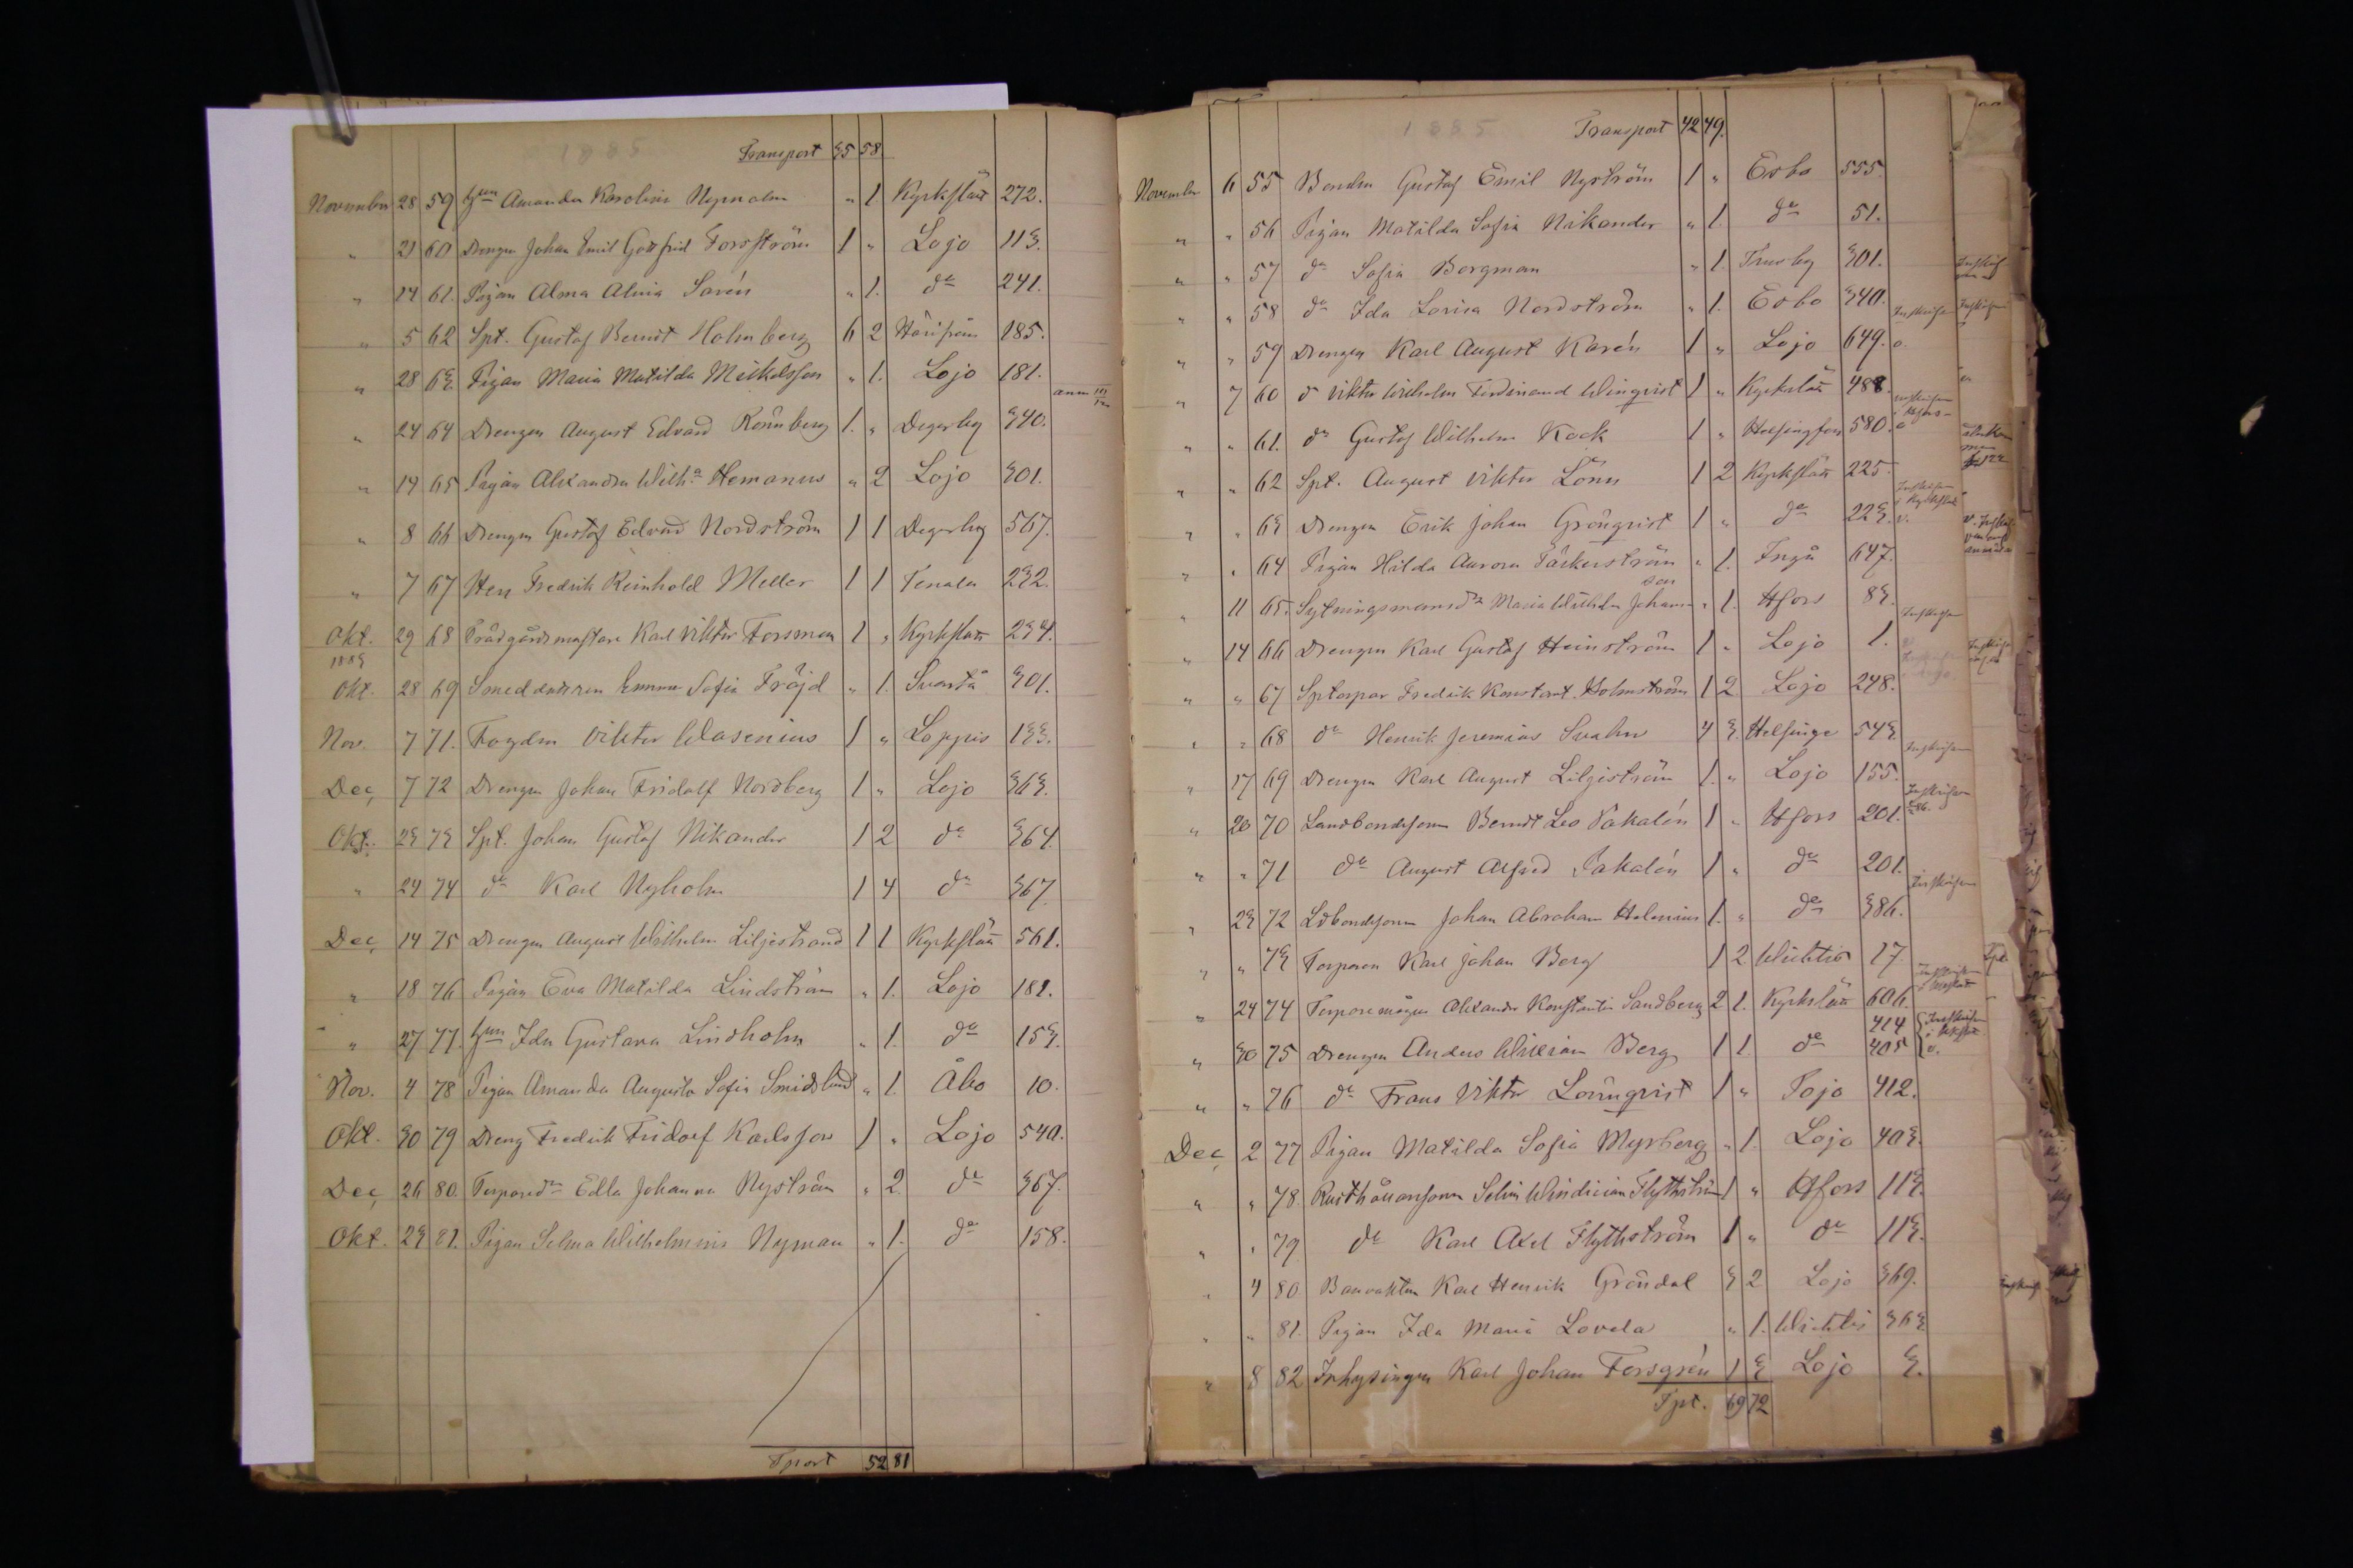 1885
Transport 35 58
November 28 59 Amanda Karolina Nyman " 1 Kyrkslätt 272.
" 21 60 Drengen Johan Emil Gottfrid Forsström 1 " Lojo 113.
" 14 61. Pigan Alma Alina Sarén " 1. do 241.
" 5 62 Spt. Gustaf Berndt Holmberg 6 2 Härifrån 185.
" 28 63. Pigan Maria Matilda Mickelsson " 1. Lojo 181.
" 24 64 Drengen August Edvard Rönnberg 1. " Degerby 340.
" 14 65 Pigan Alexandra Wilh:a Hemanus " 2 Lojo 301.
" 8 66 Drengen Gustaf Edvard Nordström 1 1 Degerby 567.
" 7 67 Herr Fredrik Reinhold Meller 1 1 Tenala 232.
Okt. 29 68 Trädgårdsmästare Karl Viktor Forsman 1 " Kyrkslätt 234.
1883
Okt. 28 69 Smeddottren Emma Sofia Fröjd " 1. Svartå 301.
Nov. 7 71. Fogden Viktor Wasenius 1 " Loppis 133.
Dec, 7 72 Drengen Johan Fridolf Nordberg 1 " Lojo 363.
Okt. 23 73 Spt. Johan Gustaf Nikander 1 2 do 364.
" 24 74 do Karl Nyholm 1 4 do 367.
Dec, 14 75 Drengen August Wilhelm Liljestrand 1 1 Kyrkslätt 561.
" 18 76 Pigan Eva Matilda Lindström " 1. Lojo 181.
" 27 77. Ida Gustava Lindholm " 1. do 153.
Nov. 4 78 Pigan Amanda Augusta Sofia Smidslund " 1. Åbo 10.
Okt. 30 79 Dreng Fredrik Fridolf Karlsson 1 " Lojo 540.
Dec, 26 80. Torpared:r Edla Johanna Nyström " 2. do 367.
Okt. 23 81. Pigan Selma Wilhelmina Nyman " 1. do 158.
Tport 52 81
1885
Transport 42 49.
November 6 55 Bonden Gustaf Emil Nyström 1 " Esbo 555.
" " 56 Pigan Matilda Sofia Nikander " 1. do 51.
" " 57 do Sofia Bergman " 1. Trusby 301.
" " 58 do Ida Lovisa Nordström " 1. Esbo 340.
" " 59 Drengen Karl August Karén 1 " Lojo 649.
" 7 60 d Viktor Wilhelm Ferdinand Winqvist 1 " Kyrkslätt 488.
" " 61. do Gustaf Wilhelm Kock 1 " Helsingfors 580.
" " 62 Spt. August Viktor Lönn 1 2 Kyrkslätt 225.
" " 63 Drengen Erik Johan Grönqvist 1 " do 223.
" " 64 Pigan Hilda Aurora Päckerström " 1. Ingå 647.
" 11 65. Sytningsmansd:r Maria Wilhelm Johansson " 1. Hfors 83.
" 14 66 Drengen Karl Gustaf Heinström 1 " Lojo 1.
" " 67 Sptorpar Fredrik Konstant. Holmström 1 2 Lojo 248.
" " 68 do Henrik Jeremias Svahn 4 3. Helsinge 543
" 17 69 Drengen Karl August Liljeström 1. " Lojo 155.
" 20 70 Landbondesonen Berndt Leo Pakalén 1 " Hfors 201.
" " 71 do August Alfred Pakalén 1 " do 201.
" 23 72 Ldbondesonen Johan Abraham Helenius 1. " do 386.
" " 73 Torparen Karl Johan Berg 1 2 Wichtis 17.
" 24 74 Torparemågen Alexander Konstantin Sandberg 2 1. Kyrkslätt 606.
" 30 75 Drengen Anders William Berg 1 1. do 414 405
" " 76 do Frans Viktor Lönnqvist 1 " Pojo 412.
Dec, 2 77 Pigan Matilda Sofia Myrberg " 1. Lojo 403.
" " 78 Rusthållarsonen Selim Windician Flythström 1 " Hfors 113.
" " 79 do Karl Axel Flythström 1 " do 113.
" 4 80 Banvakten Karl Henrik Gröndal 3 2 Lojo 369.
" " 81. Pigan Ida Maria Lovela " 1. Wichtis 363
" 8 82 Inhysingen Karl Johan Forsgrén 1 3 Lojo 3.
Tpt. 69 72